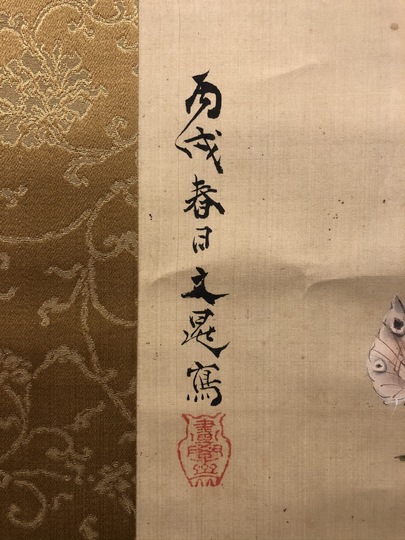 丙戌春日文晁寫